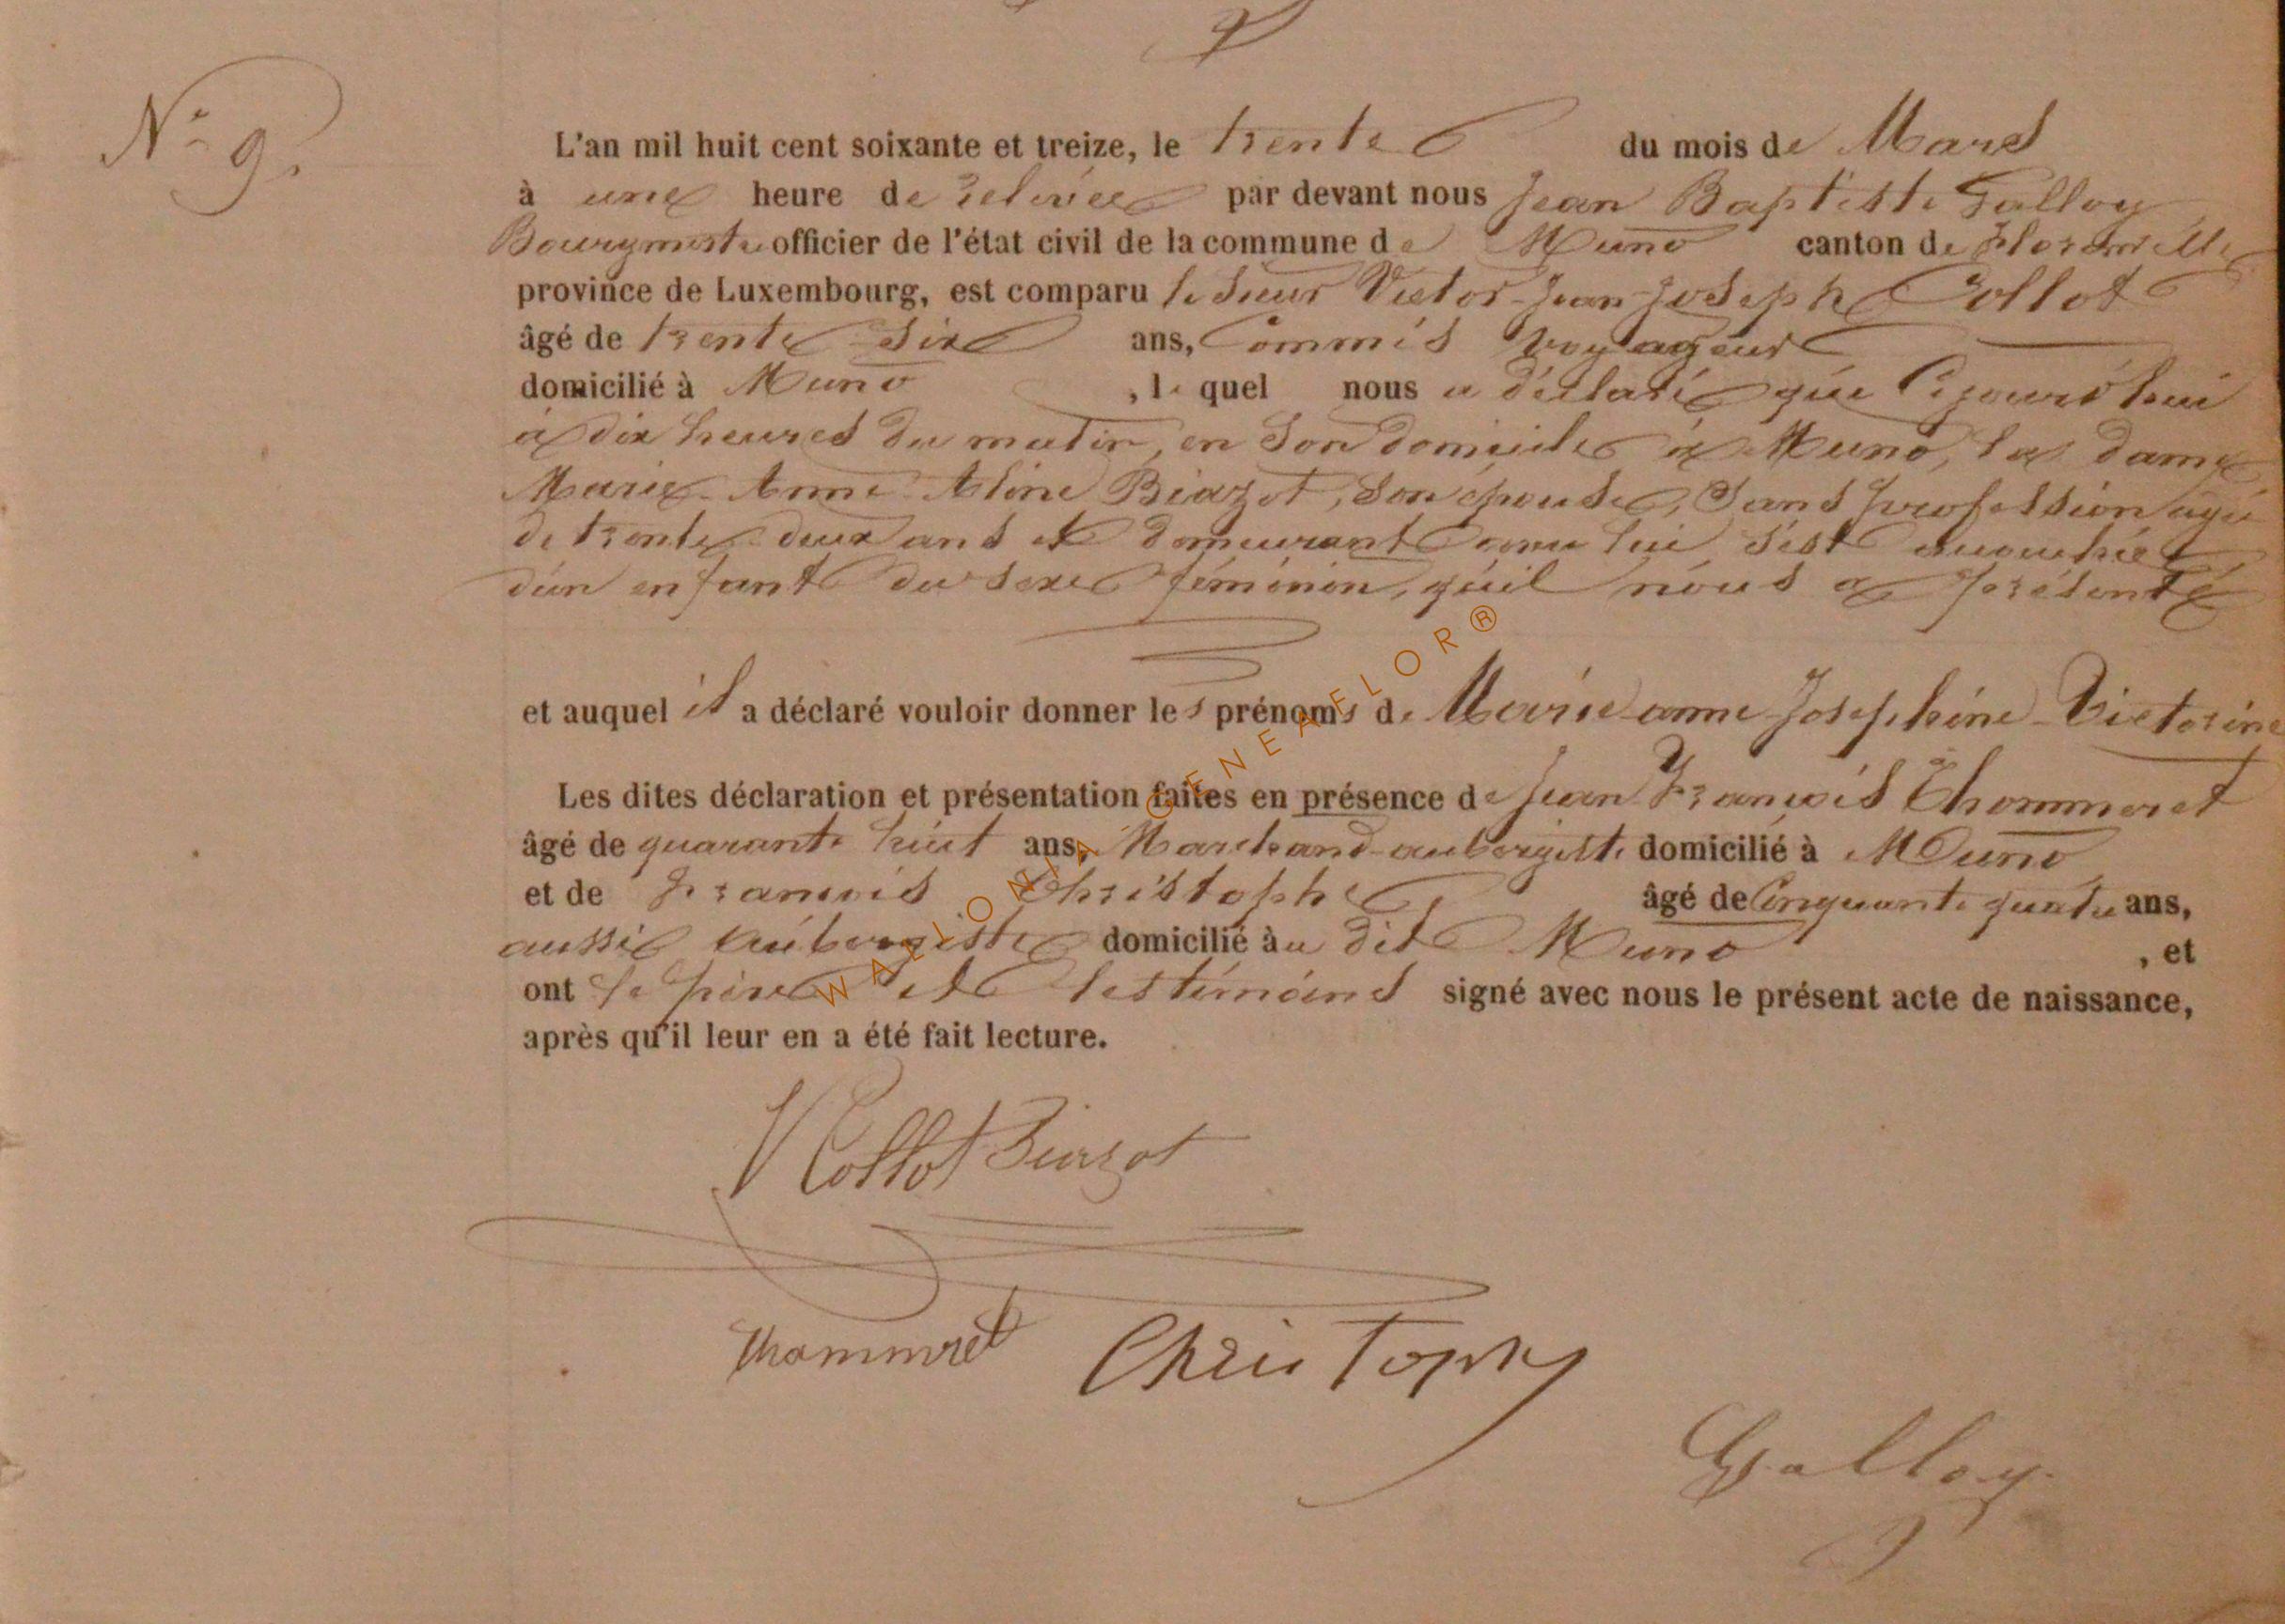 N° 9.
L'an mil huit cent soixante et treize, le trente du mois de Mars
à une heure de relevée par devant nous Jean Baptiste Galloy
Bourgmestre officier de l'état civil de la commune de Muno canton de Florenville
province de Luxembourg, est comparu le sieur Victor-Jean-Joseph Collot
âgé de trente-six ans, Commis voyageur
domicilié à Muno, lequel nous a déclaré que Cejourd'hui
à dix heures du matin, en son domicile à Muno, la dame
Marie-Anne-Aline Biazot, son épouse, sans profession agée
de trente-deux ans et demeurant avec lui s'est accouchée
d'un enfant du sexe féminin, qu'il nous a présenté
et auquel il a déclaré vouloir donner les prénoms de Marie-anne-Joséphine-Victorine
Les dites déclaration et présentation faites en présence de Jean François Thommeret
âgé de quarante huit ans, Marchand-aubergiste domicilié à Muno
et de François Christophe âgé de Cinquante quatre ans,
aussi aubergiste domicilié au dit Muno, et
ont le père et les témoins signé avec nous le présent acte de naissance,
après qu'il leur en a été fait lecture.
V Collot Biazot
Thommeret Christophe
Galloy
WALLONIA GENEAFLOR®